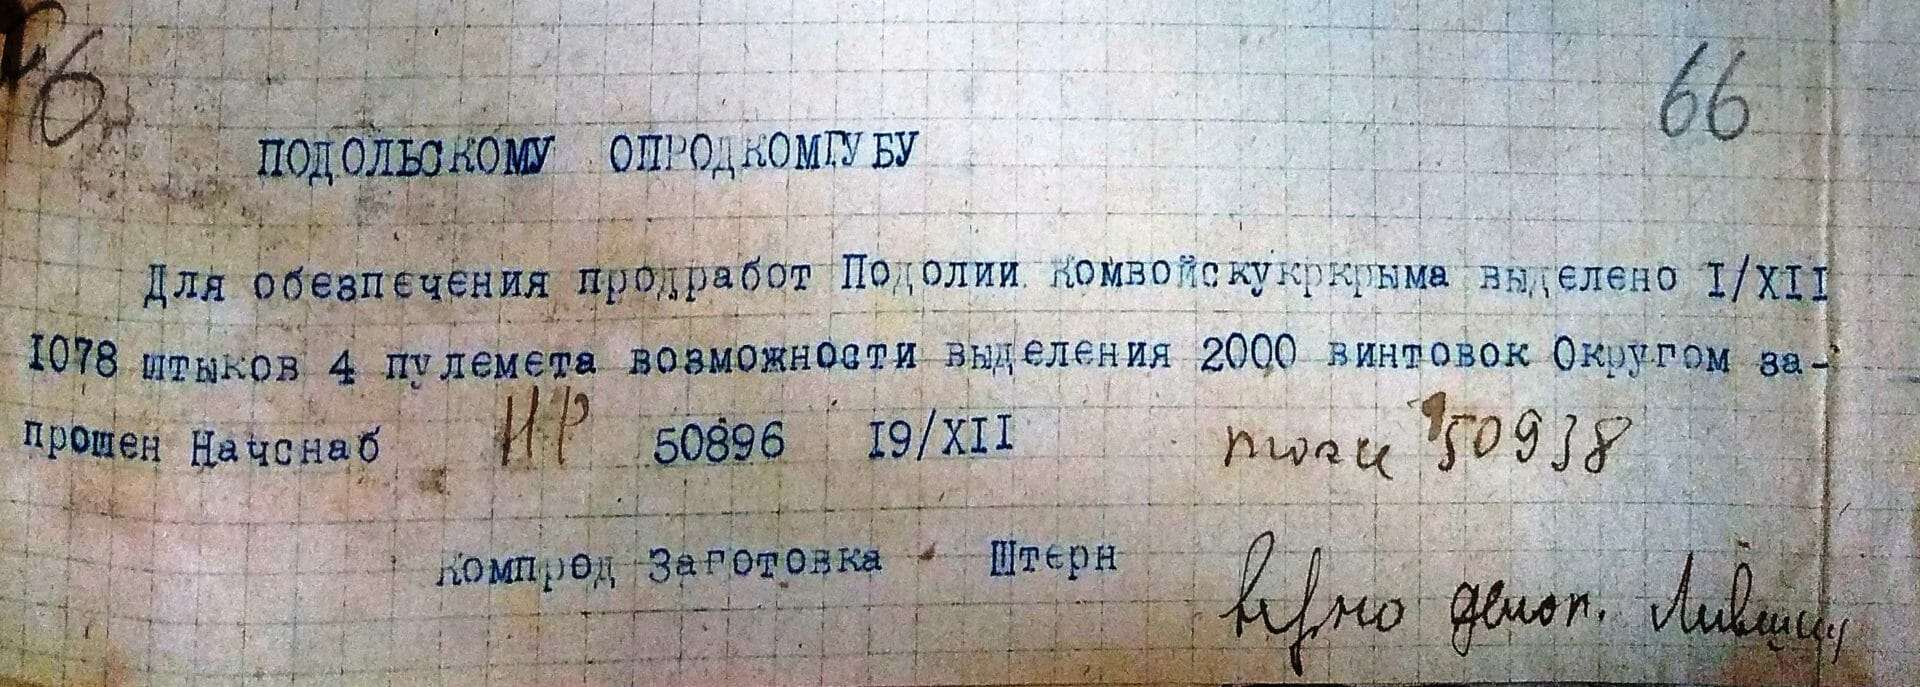 66
ПОДОЛЬСКОМУ ОПРОДКОМГУБУ
Для обезпечения продработ Подолии Комвойскукркрыма выделено I/XII
I078 штыков 4 пулемета возможности выделения 2000 винтовок Округом за-
прошен Начснаб НР 50896 I9/XII 50938
Компрод Заготовка - Штерн
верно делоп. Лившиц